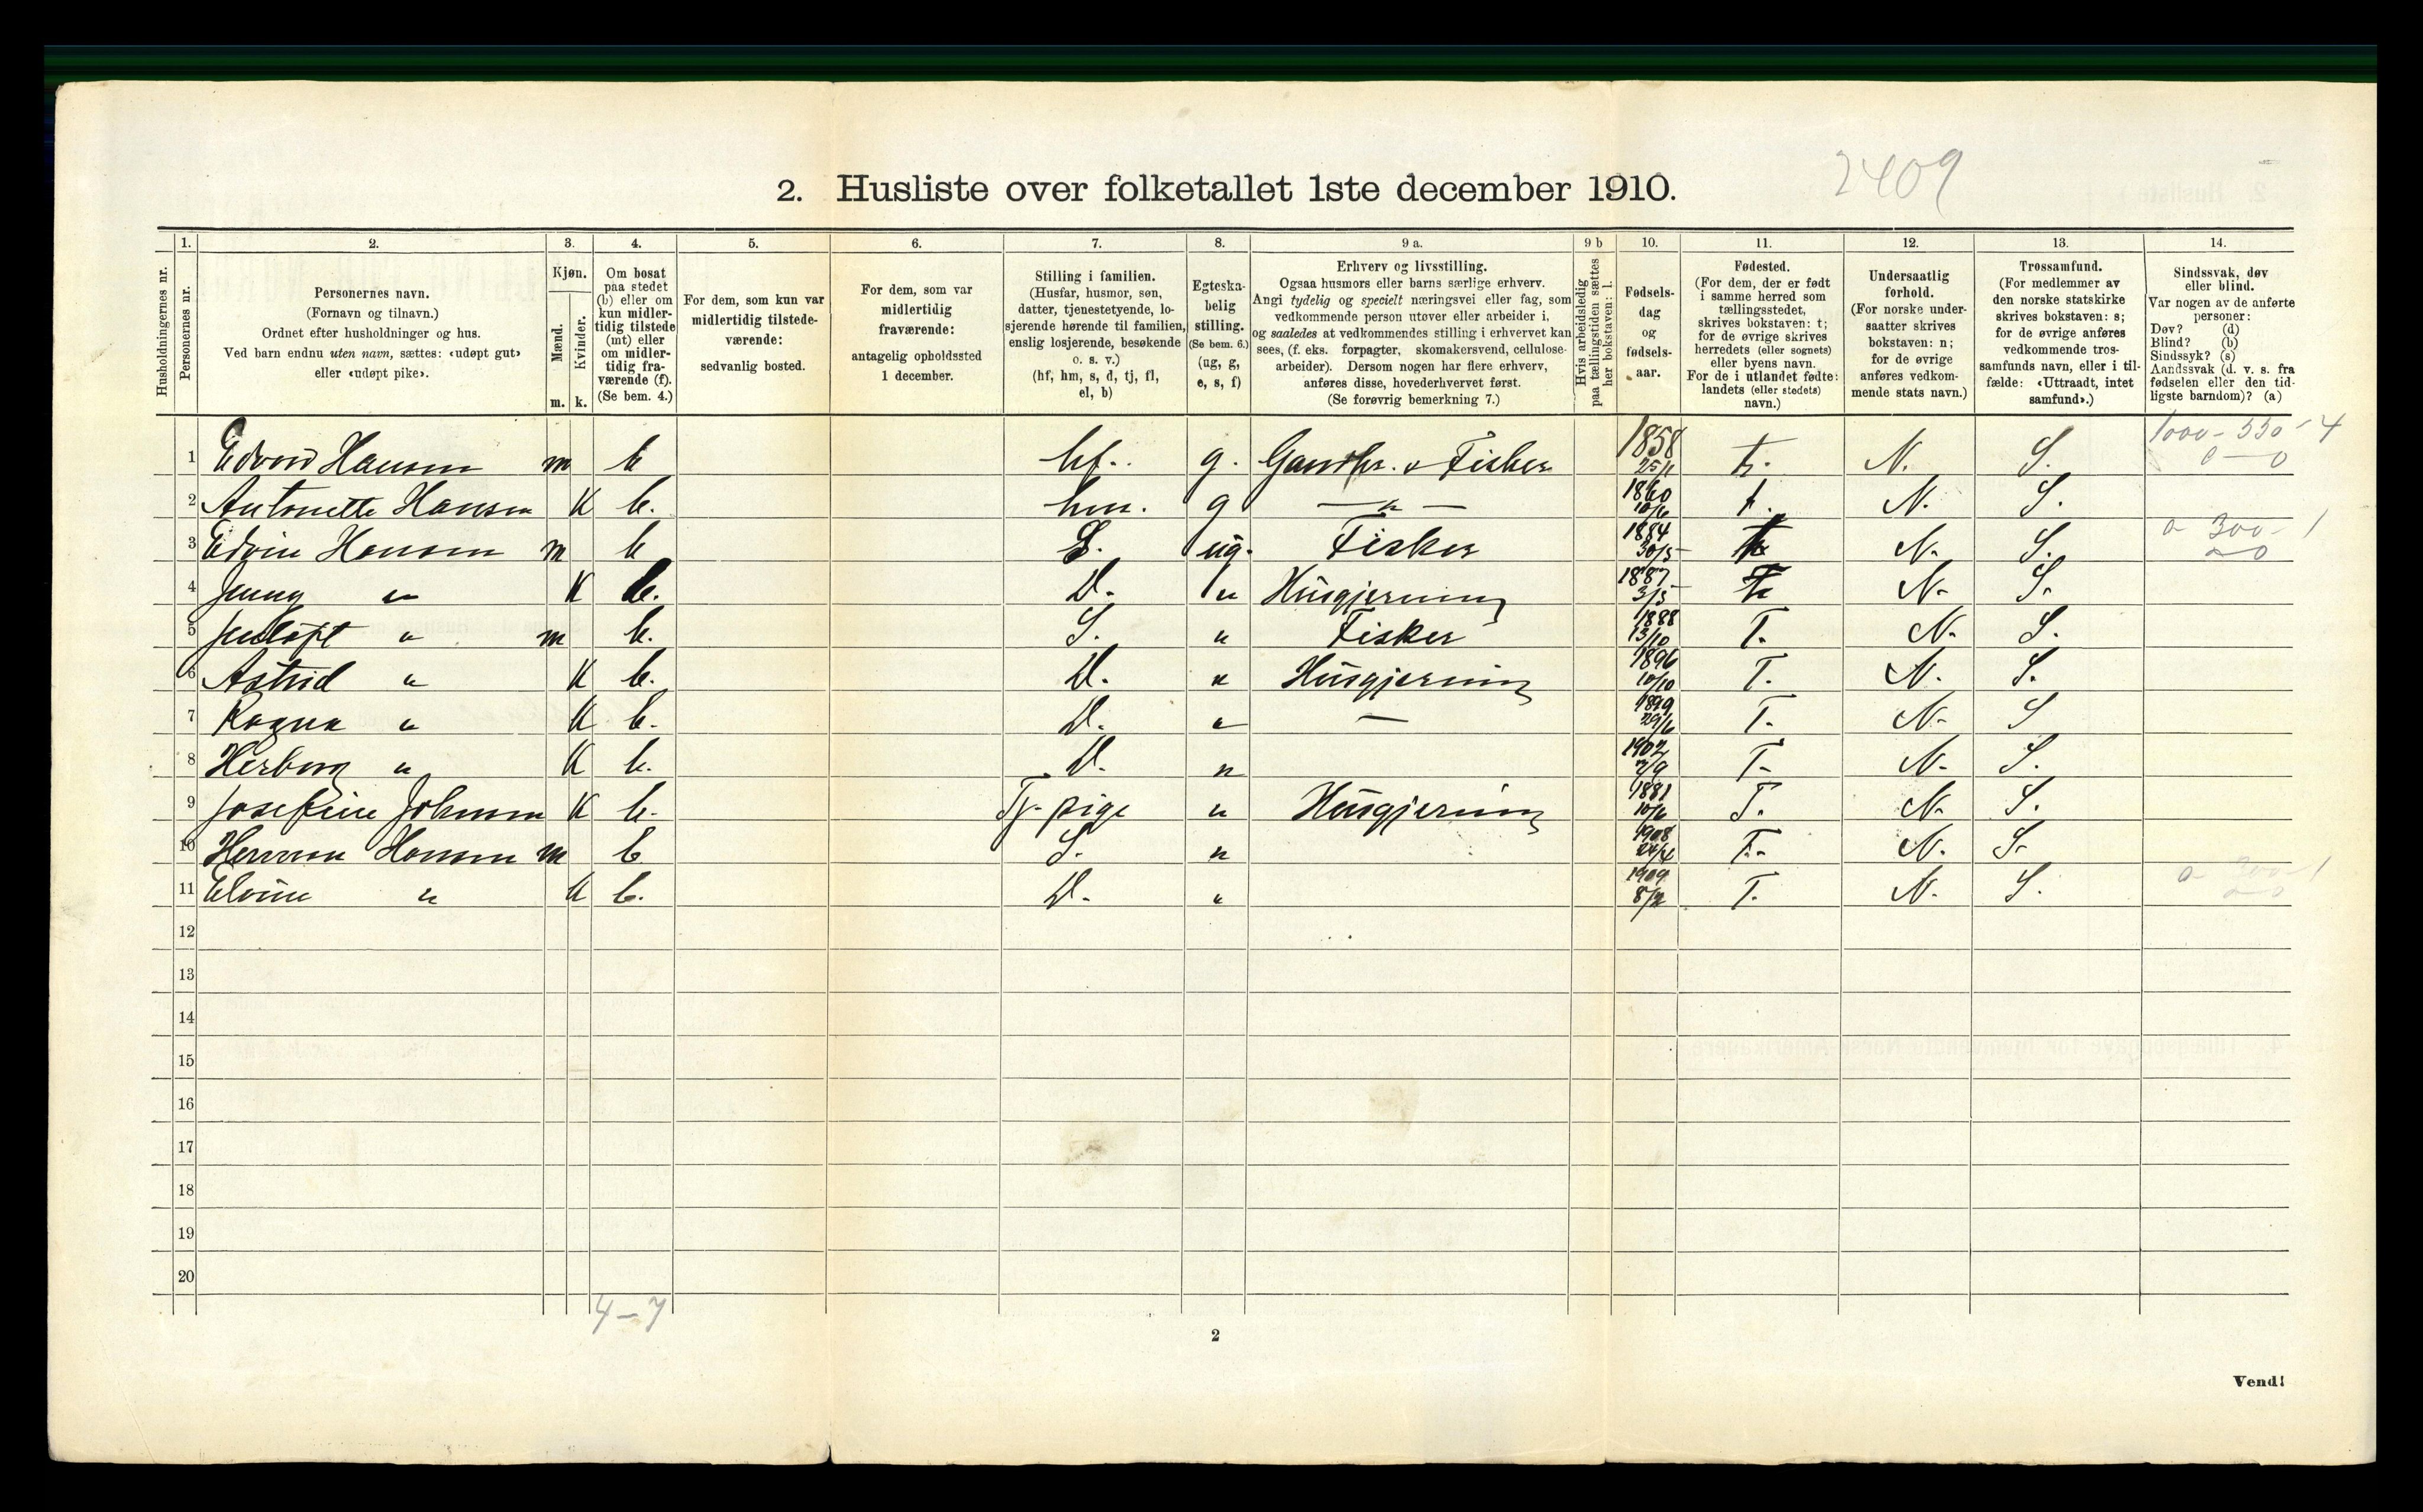 2409
2. Husliste over folketallet 1ste december 1910.
Husholdningernes nr.
1. Personernes nr.
2. Personernes navn.
(Fornavn og tilnavn.)
Ordnet efter husholdninger og hus.
Ved barn endnu uten navn, sættes: «udøpt gut»
eller «udøpt pike».
3. Kjøn.
Mænd. Kvinder.
m. k.
4. Om bosat
paa stedet
(b) eller om
kun midler-
tidig tilstede
(mt) eller
om midler-
tidig fra-
værende (f).
(Se bem. 4.)
5. For dem, som kun var
midlertidig tilstede-
værende:
sedvanlig bosted.
6. For dem, som var
midlertidig
fraværende:
antagelig opholdssted
1 december.
7. Stilling i familien.
(Husfar, husmor, søn,
datter, tjenestetyende, lo-
sjerende hørende til familien,
enslig losjerende, besøkende
o. s. v.)
(hf, hm, s, d, tj, fl,
el, b)
8. Egteska-
belig
stilling.
(Se bem. 6.)
(ug, g,
e, s, f)
9 a. Erhverv og livsstilling.
Ogsaa husmors eller barns særlige erhverv.
Angi tydelig og specielt næringsvei eller fag, som
vedkommende person utøver eller arbeider i,
og saaledes at vedkommendes stilling i erhvervet kan
sees, (f. eks. forpagter, skomakersvend, cellulose-
arbeider). Dersom nogen har flere erhverv,
anføres disse, hovederhvervet først.
(Se forøvrig bemerkning 7.)
9 b Hvis arbeidsledig
paa tællingstiden sættes
her bokstaven: l.
10. Fødsels-
dag
og
fødsels-
aar.
11. Fødested.
(For dem, der er født
i samme herred som
tællingsstedet,
skrives bokstaven: t;
for de øvrige skrives
herredets (eller sognets)
eller byens navn.
For de i utlandet fødte:
landets (eller stedets)
navn.)
12. Undersaatlig
forhold.
(For norske under-
saatter skrives
bokstaven: n;
for de øvrige
anføres vedkom-
mende stats navn.)
13. Trossamfund.
(For medlemmer av
den norske statskirke
skrives bokstaven: s;
for de øvrige anføres
vedkommende tros-
samfunds navn, eller i til-
fælde: «Uttraadt, intet
samfund».)
14. Sindssvak, døv
eller blind.
Var nogen av de anførte
personer:
Døv? (d)
Blind? (b)
Sindssyk? (s)
Aandssvak (d. v. s. fra
fødselen eller den tid-
ligste barndom)? (a)
1000 - 550 - 4
0 — 0
1 Edvard Hansen m b hf. g. Gaardbr. & Fisker 1858 25/1 t. N. S.
2 Antonette Hansen K b. hm. g — " — 1860 10/6 t. N. S.
0 300 - 1
3 Edvin Hansen m b S. ug. Fisker 1884 30/5 t N. S.
4 Jenny " K b. D. " Husgjerning 1887 3/5 T N. S.
5 Jentoft " m b. S. " Fisker 1888 13/10 T. N. S.
6 Astrid " K b. D. " Husgjerning 1896 10/10 T. N. S.
7 Ragna " K b. D. " — 1899 29/6 T. N. S
8 Herborg " K b. D. " 1902 7/9 T. N. S.
9 Josefine Johnsen K b. Tj. pige " Husgjerning 1881 10/6 T. N. S.
10 Herman Hansen m b S. " 1908 24/4 T. N. S.
0 300 - 1
11 Elvine " K b. D. " 1909 8/2 T. N. S.
12
13
14
15
16
17
18
19
20
4 - 7
2
Vend!